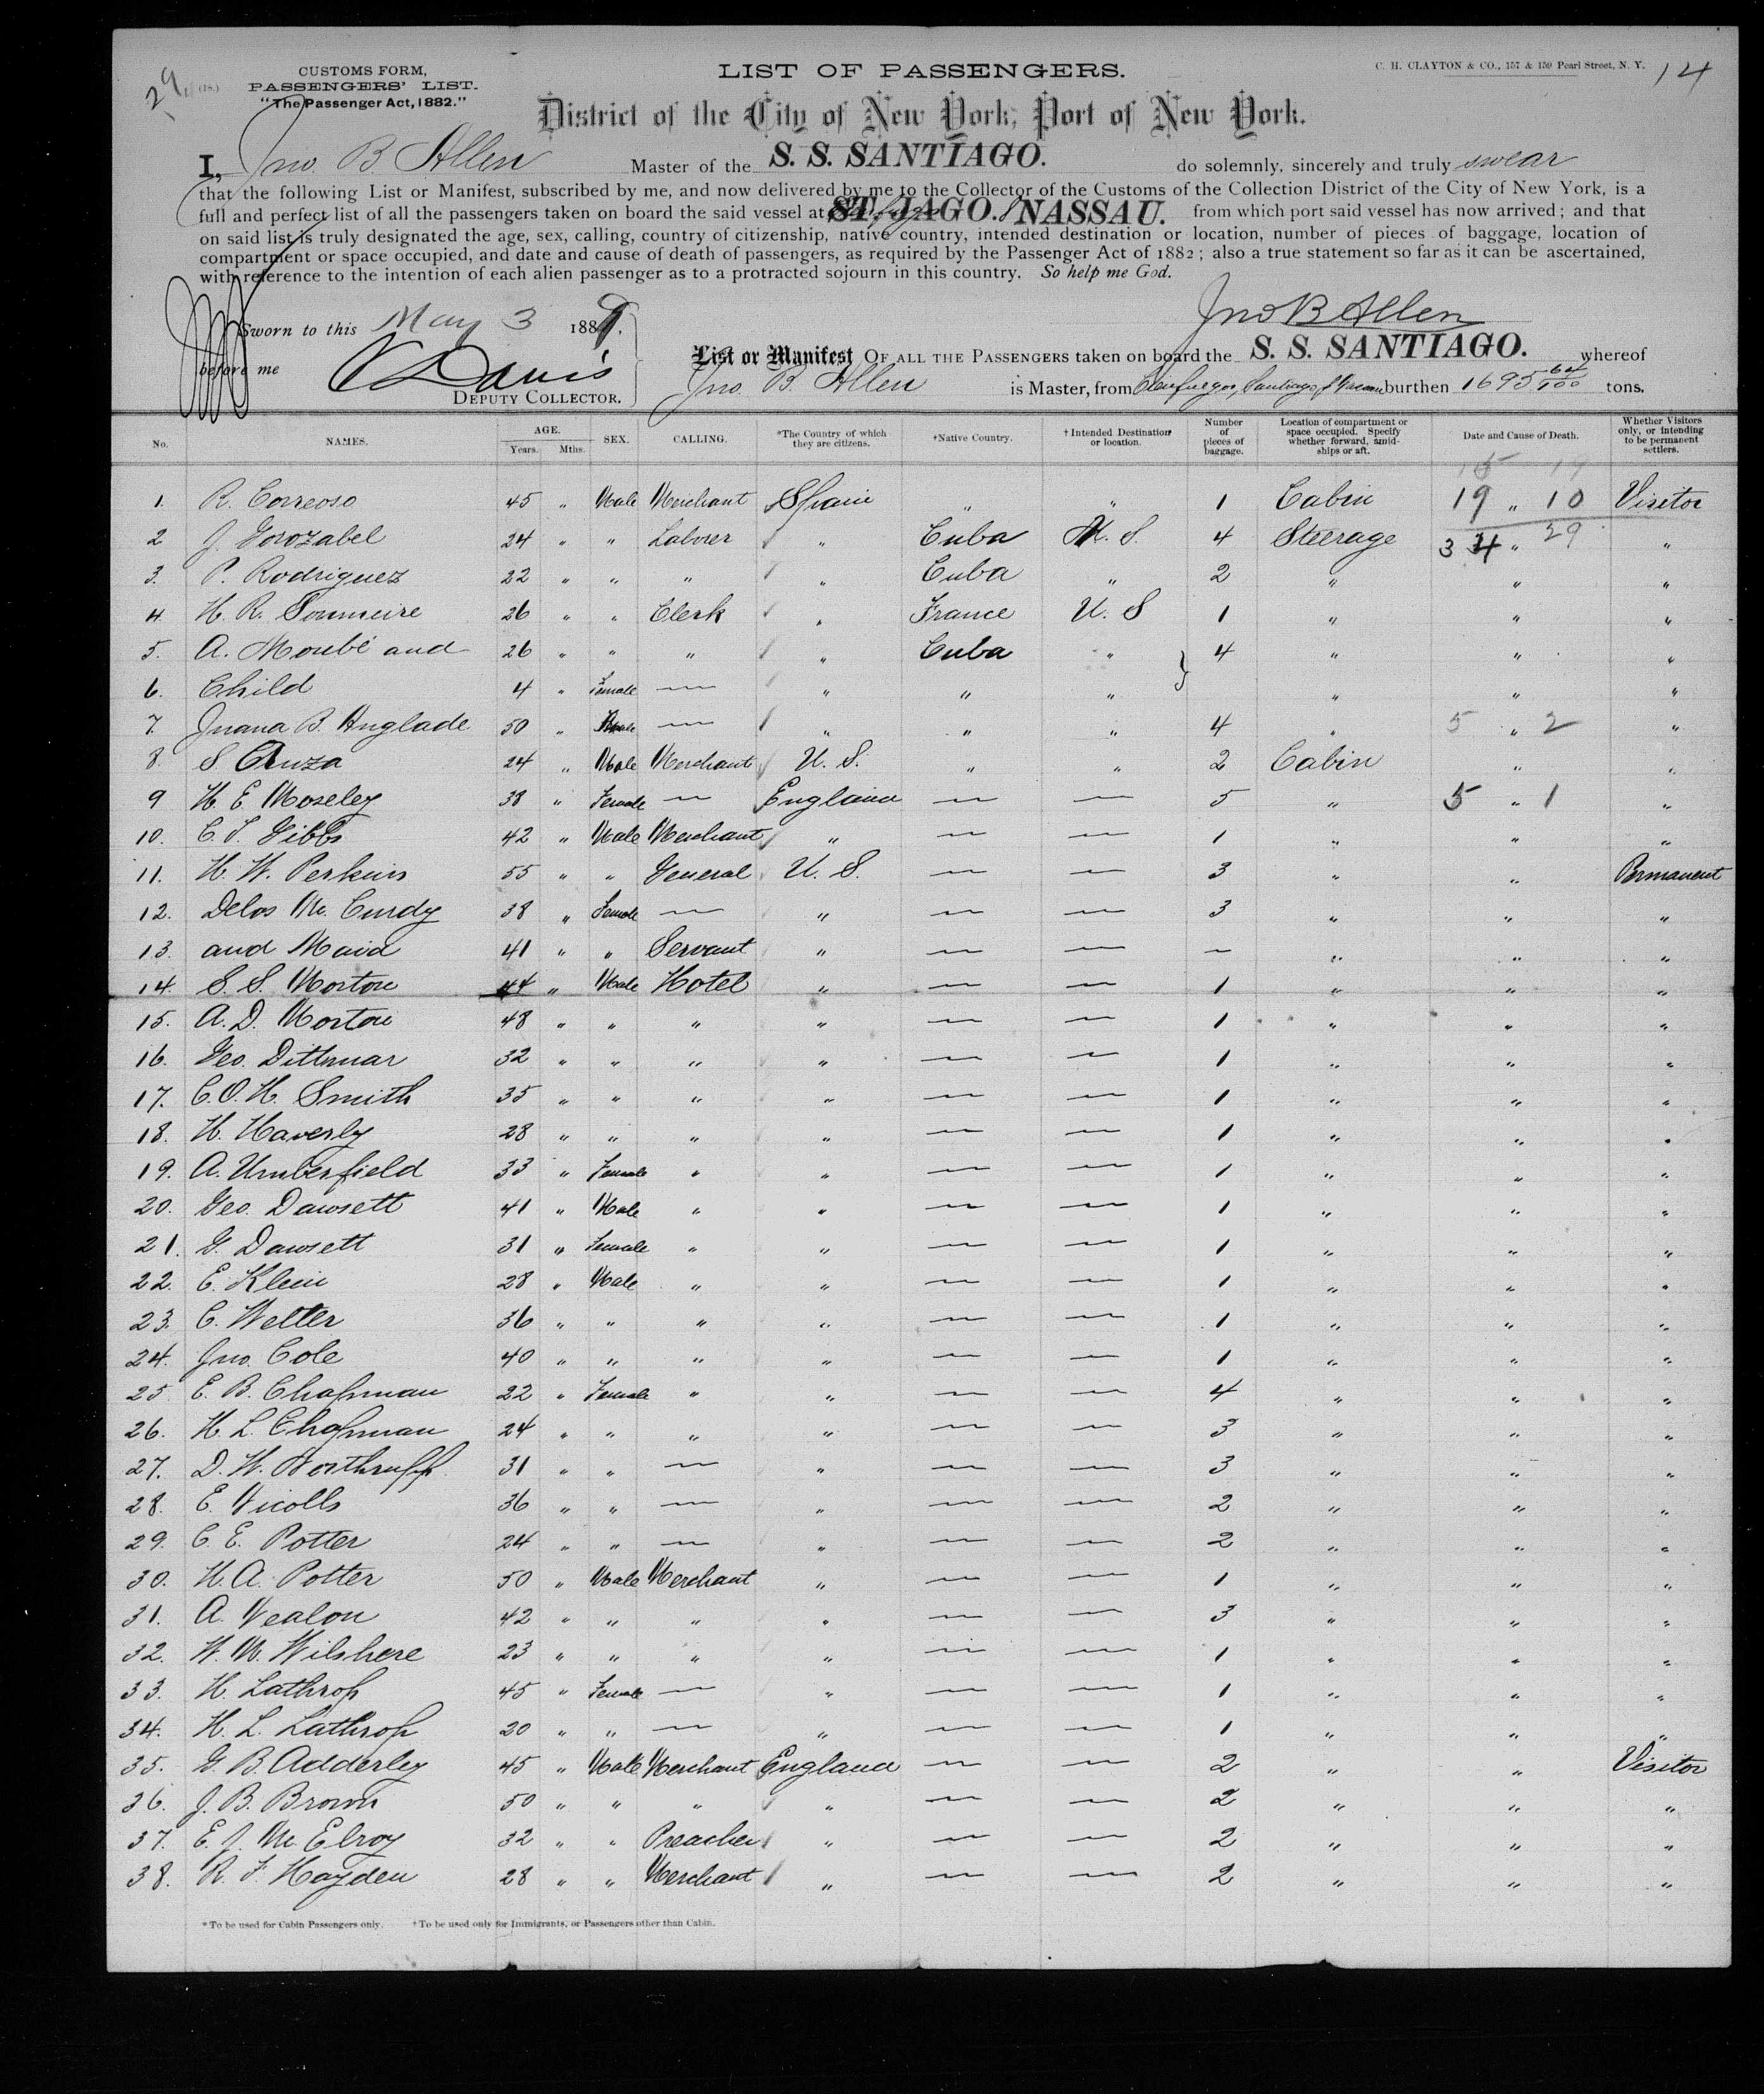 29 (18.)
CUSTOMS FORM,
PASSENGERS' LIST.
"The Passenger Act, 1882."
LIST OF PASSENGERS.
C. H. CLAYTON & CO., 157 & 159 Pearl Street, N. Y. 14
District of the City of New York, Port of New York.
I, Jno. B Allen Master of the S. S. SANTIAGO. do solemnly, sincerely and truly swear
that the following List or Manifest, subscribed by me, and now delivered by me to the Collector of the Customs of the Collection District of the City of New York, is a
full and perfect list of all the passengers taken on board the said vessel at ST. JAGO. & NASSAU. from which port said vessel has now arrived; and that
on said list is truly designated the age, sex, calling, country of citizenship, native country, intended destination or location, number of pieces of baggage, location of
compartment or space occupied, and date and cause of death of passengers, as required by the Passenger Act of 1882; also a true statement so far as it can be ascertained,
with reference to the intention of each alien passenger as to a protracted sojourn in this country. So help me God.
Jno B Allen
Sworn to this May 3 1889.
before me Davis
DEPUTY COLLECTOR.
List or Manifest OF ALL THE PASSENGERS taken on board the S. S. SANTIAGO. whereof
Jno. B. Allen is Master, from Cienfuegos, Santiago & Nassau burthen 1695 64/100 tons.
No. NAMES. AGE. Years. Mths. SEX. CALLING. *The Country of which they are citizens. †Native Country. †Intended Destination or location. Number of pieces of baggage. Location of compartment or space occupied. Specify whether forward, amidships or aft. Date and Cause of Death. Whether Visitors only, or intending to be permanent settlers.
15 19
1. R. Correoso 45 " Male Merchant Spain " " 1 Cabin 19 " 10 Visitor
2 J. Gorozabel 24 " " Laborer " Cuba U. S. 4 Steerage 34 " 29 "
3. P. Rodriguez 22 " " " " Cuba " 2 " " "
4. H. R. Sommeire 26 " " Clerk " France U. S 1 " " "
5. A. Moubé and 26 " " " " Cuba " 4 " " "
6. Child 4 " Female — " " " " " "
7. Juana B. Anglade 50 " Female — " " " 4 " 5 " 2 "
8. S. Auza 24 " Male Merchant U. S. " " 2 Cabin " "
9 H. E. Moseley 38 " Female — England — — 5 " 5 " 1 "
10. C. T. Gibbs 42 " Male Merchant " — — 1 " " "
11. H. W. Perkins 55 " " General U. S. — — 3 " " Permanent
12. Delos Mc. Curdy 38 " Female — " — — 3 " " "
13. and Maid 41 " " Servant " — — — " " "
14. S. S. Morton 44 " Male Hotel " — — 1 " " "
15. A. D. Morton 48 " " " " — — 1 " " "
16. Geo. Dittmar 32 " " " " — — 1 " " "
17. C. O. H. Smith 35 " " " " — — 1 " " "
18. H. Haverly 28 " " " " — — 1 " " "
19. A. Umberfield 33 " Female " " — — 1 " " "
20. Geo. Dawsett 41 " Male " " — — 1 " " "
21. G. Dawsett 31 " Female " " — — 1 " " "
22. E. Klein 28 " Male " " — — 1 " " "
23. C. Welter 36 " " " " — — 1 " " "
24. Jno. Cole 40 " " " " — — 1 " " "
25 E. B. Chapman 22 " Female " " — — 4 " " "
26. H. L. Chapman 24 " " " " — — 3 " " "
27. D. W. Northrupp 31 " " — " — — 3 " " "
28. E. Nicolls 36 " " — " — — 2 " " "
29. C. E. Potter 24 " " — " — — 2 " " "
30. H. A. Potter 50 " Male Merchant " — — 1 " " "
31. A. Nealon 42 " " " " — — 3 " " "
32. W. M. Wilshere 23 " " " " — — 1 " " "
33. H. Lathrop 45 " Female — " — — 1 " " "
34. H. L. Lathrop 20 " " — " — — 1 " " "
35. G. B. Adderley 45 " Male Merchant England — — 2 " " Visitor
36. J. B. Brown 50 " " " " — — 2 " " "
37. E. J. Mc Elroy 32 " " Preacher " — — 2 " " "
38. R. F. Hayden 28 " " Merchant " — — 2 " " "
*To be used for Cabin Passengers only. †To be used only for Immigrants, or Passengers other than Cabin.